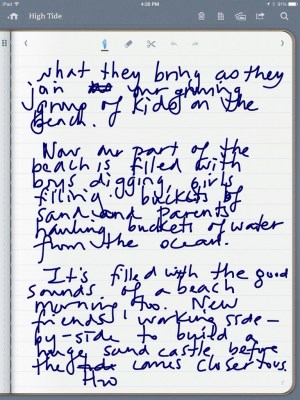 iPad
4:26 PM
81%
High Tide
what they bring as they
join our growing
group of kids on the
beach.
Now our part of the
beach is filled with
boys digging, girls
filling buckets of
sand and parents
hauling buckets of water
from the ocean.
It's filled with the good
sounds of a beach
morning too. New
friends working side-
by-side to build a
huge sand castle before
the comes closer to us.
H2O